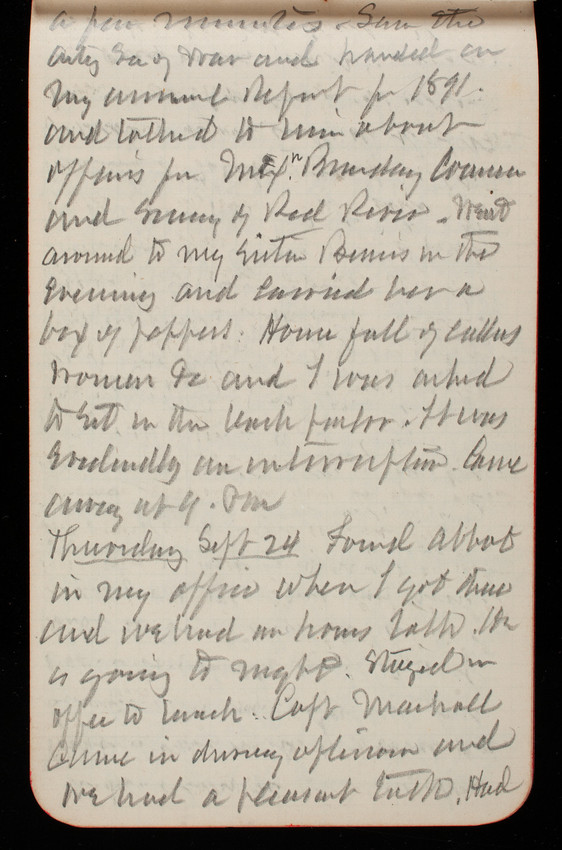 a few minutes. Saw the
actg Sec of War and handed in
my annual Report for 1891.
and talked to him about
affairs for Mexn. Boundary Commn
and Survey of Red River. Went
around to my Sister Bunnis in the
Evening and carried her a
box of peppers. House full of callers
women &c and I was asked
to sit in the back parlor. It was
Evidently an interruption. Came
away at 9. Pm
Thursday Sept 24 Found Abbot
in my office when I got there
and we had an hours talk. He
is going to night. Stayed in
office to lunch. Capt Marshall
Came in during afternoon and
we had a pleasant talk. Had